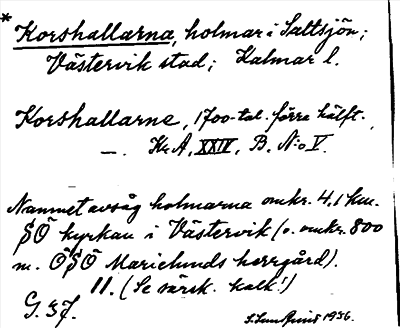 * Korshallarna, holmar i Saltsjön;
Västervik stad; Kalmar l.
Korshallarne, 1700-tal. förra hälft.
—. Kr. A, XXIV, B. N:o V.
Namnet avsåg holmarna omkr. 4,1 km.
SÖ kyrkan i Västervik (o. omkr. 800
m. ÖSÖ Marielunds herrgård).
11. (Se särsk. kalk!)
G. 1956.